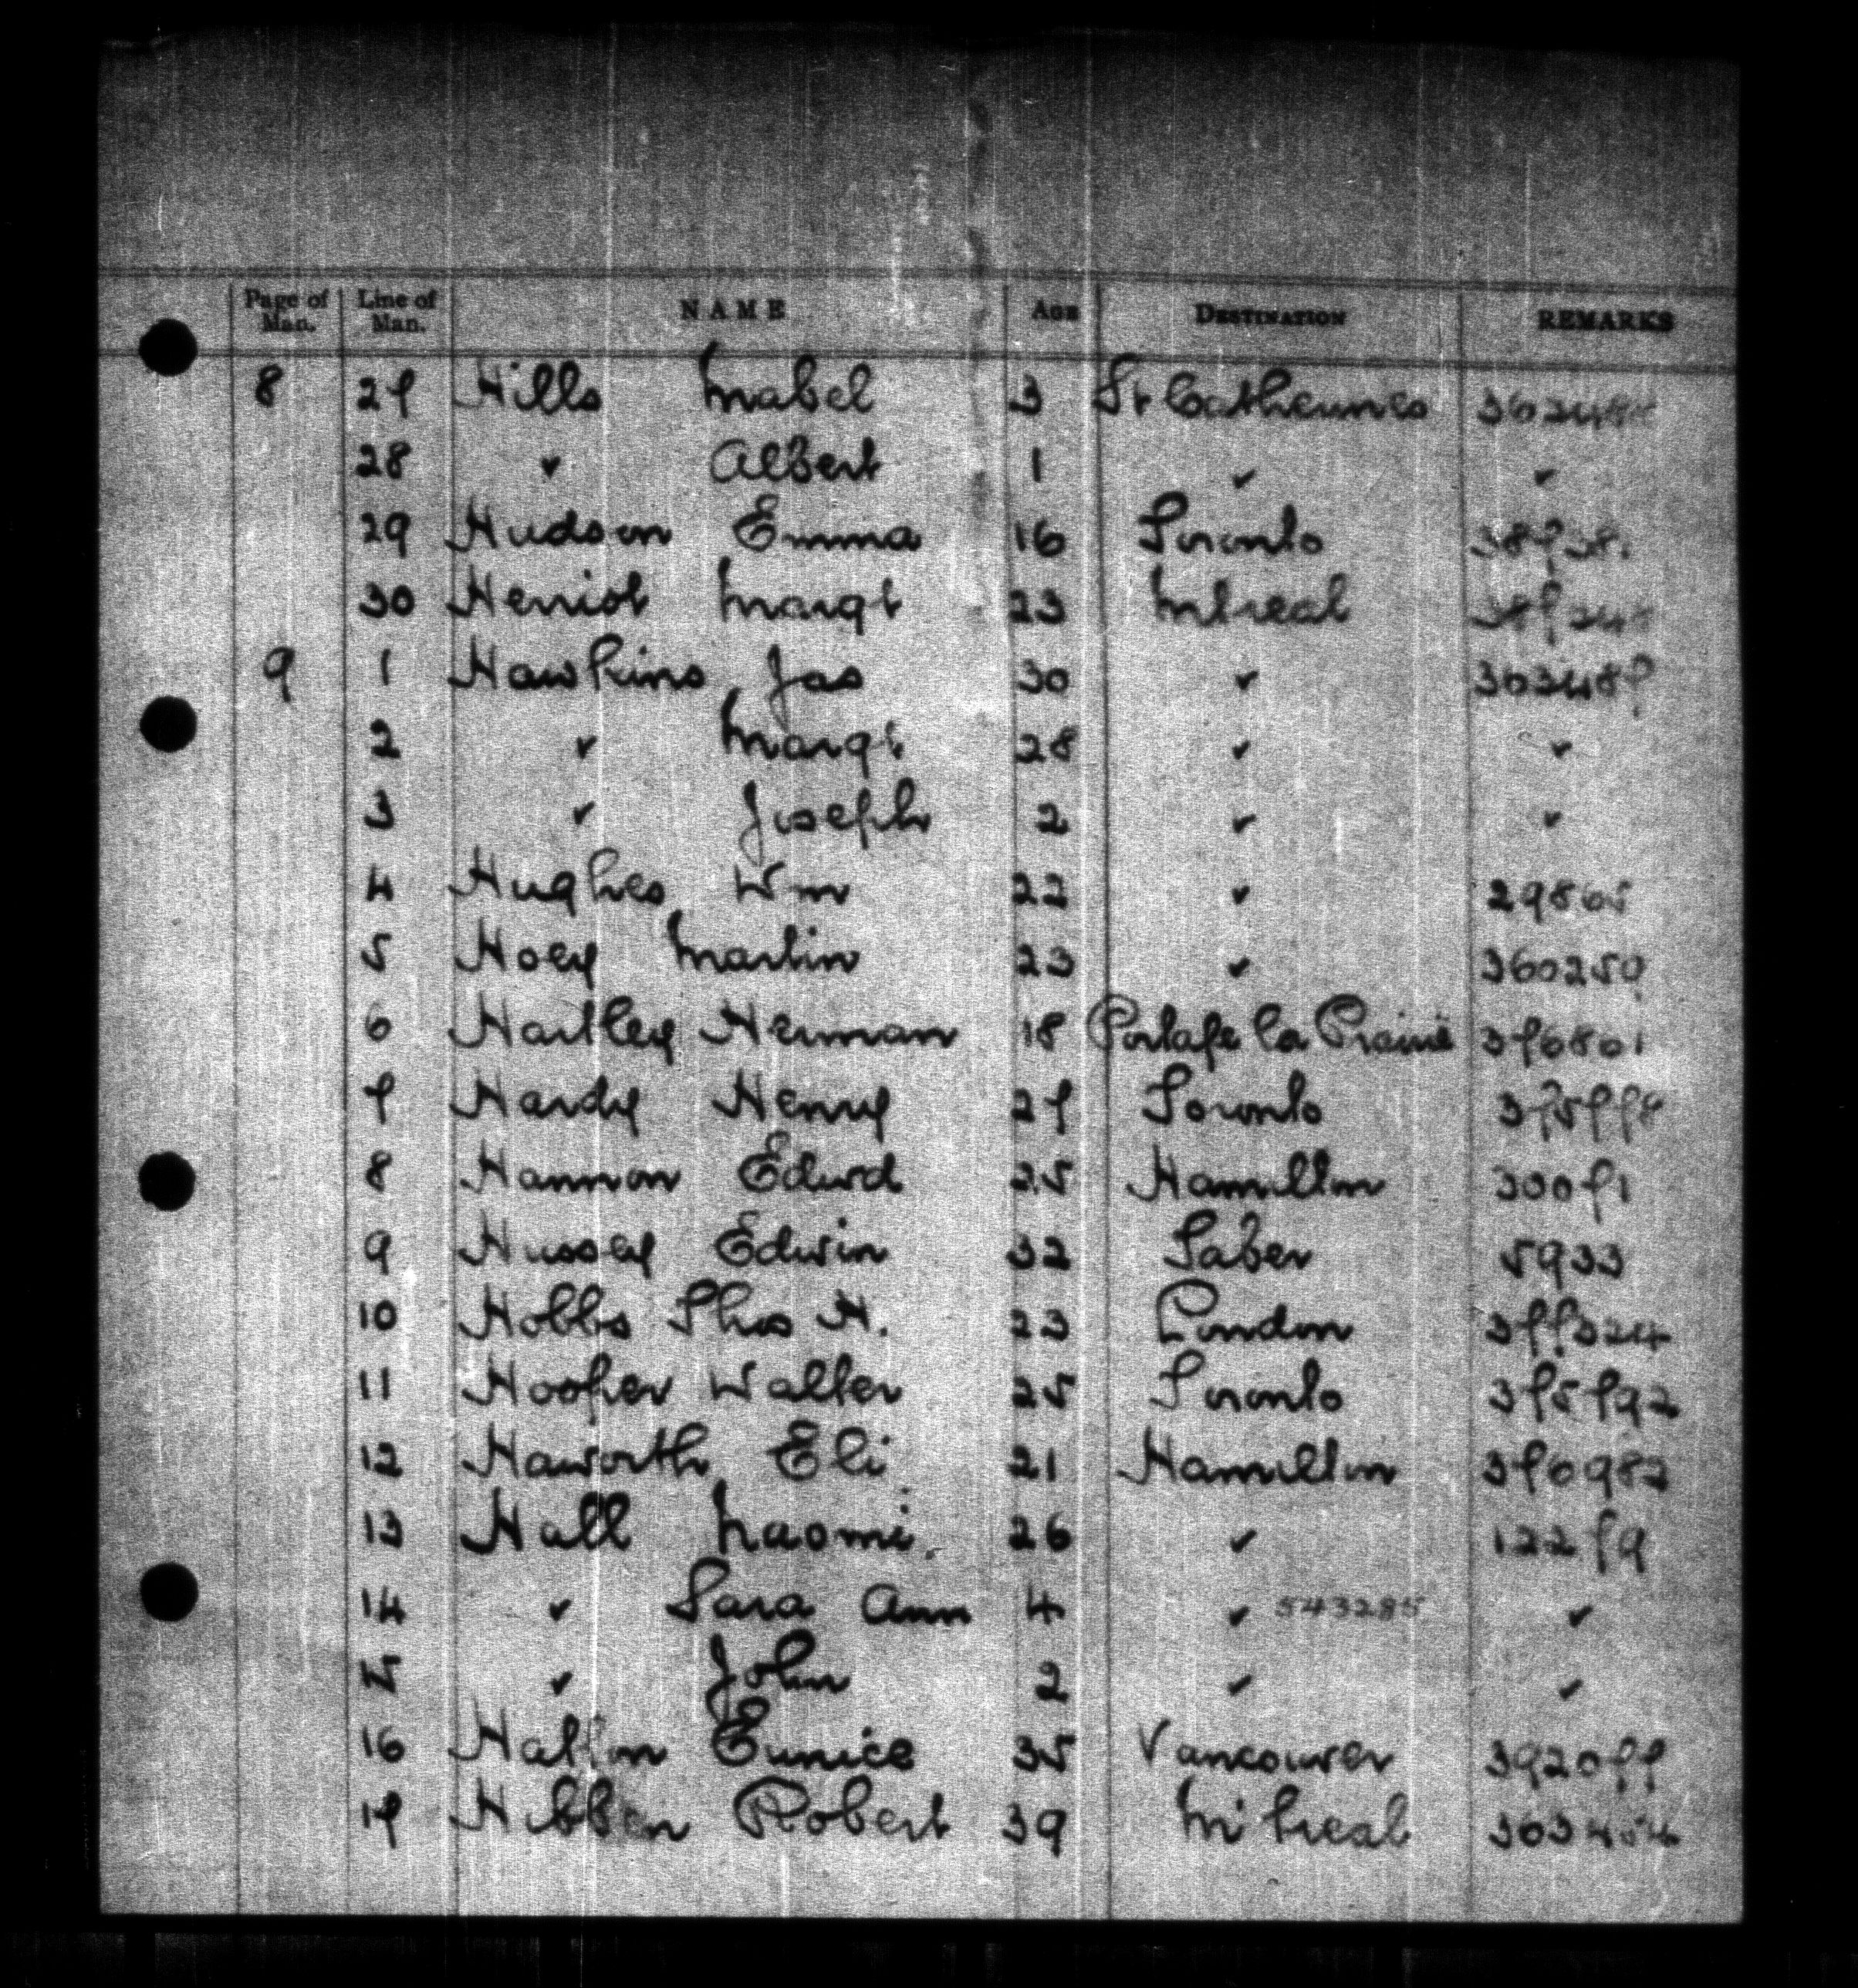 Page of Man. Line of Man. NAME AGE DESTINATION REMARKS
8 27 Hills Mabel 3 St Catherines
28 " Albert 1 " "
29 Hudson Emma 16 Toronto 38738
30 Henist Margt 23 Mtreal
9 1 Hawkins Jas 30 " 303487
2 " Margt 28 " "
3 " Joseph 2 " "
4 Hughes Wm 22 " 29865
5 Hoey Martin 23 " 360250
6 Hartley Herman 18 Portage la Prairie 376801
7 Hardy Henry 27 Toronto 375778
8 Hannon Edwd 25 Hamilton 30071
9 Hussey Edwin 32 Taber 5933
10 Hobbs Thos H. 23 London 377324
11 Hooper Walter 25 Toronto 375792
12 Haworth Eli 21 Hamilton 370982
13 Hall Naomi 26 " 12279
14 " Sara Ann 4 " 543285 "
15 " John 2 " "
16 Eunice 35 Vancouver 392077
17 Robert 39 M'treal 303454